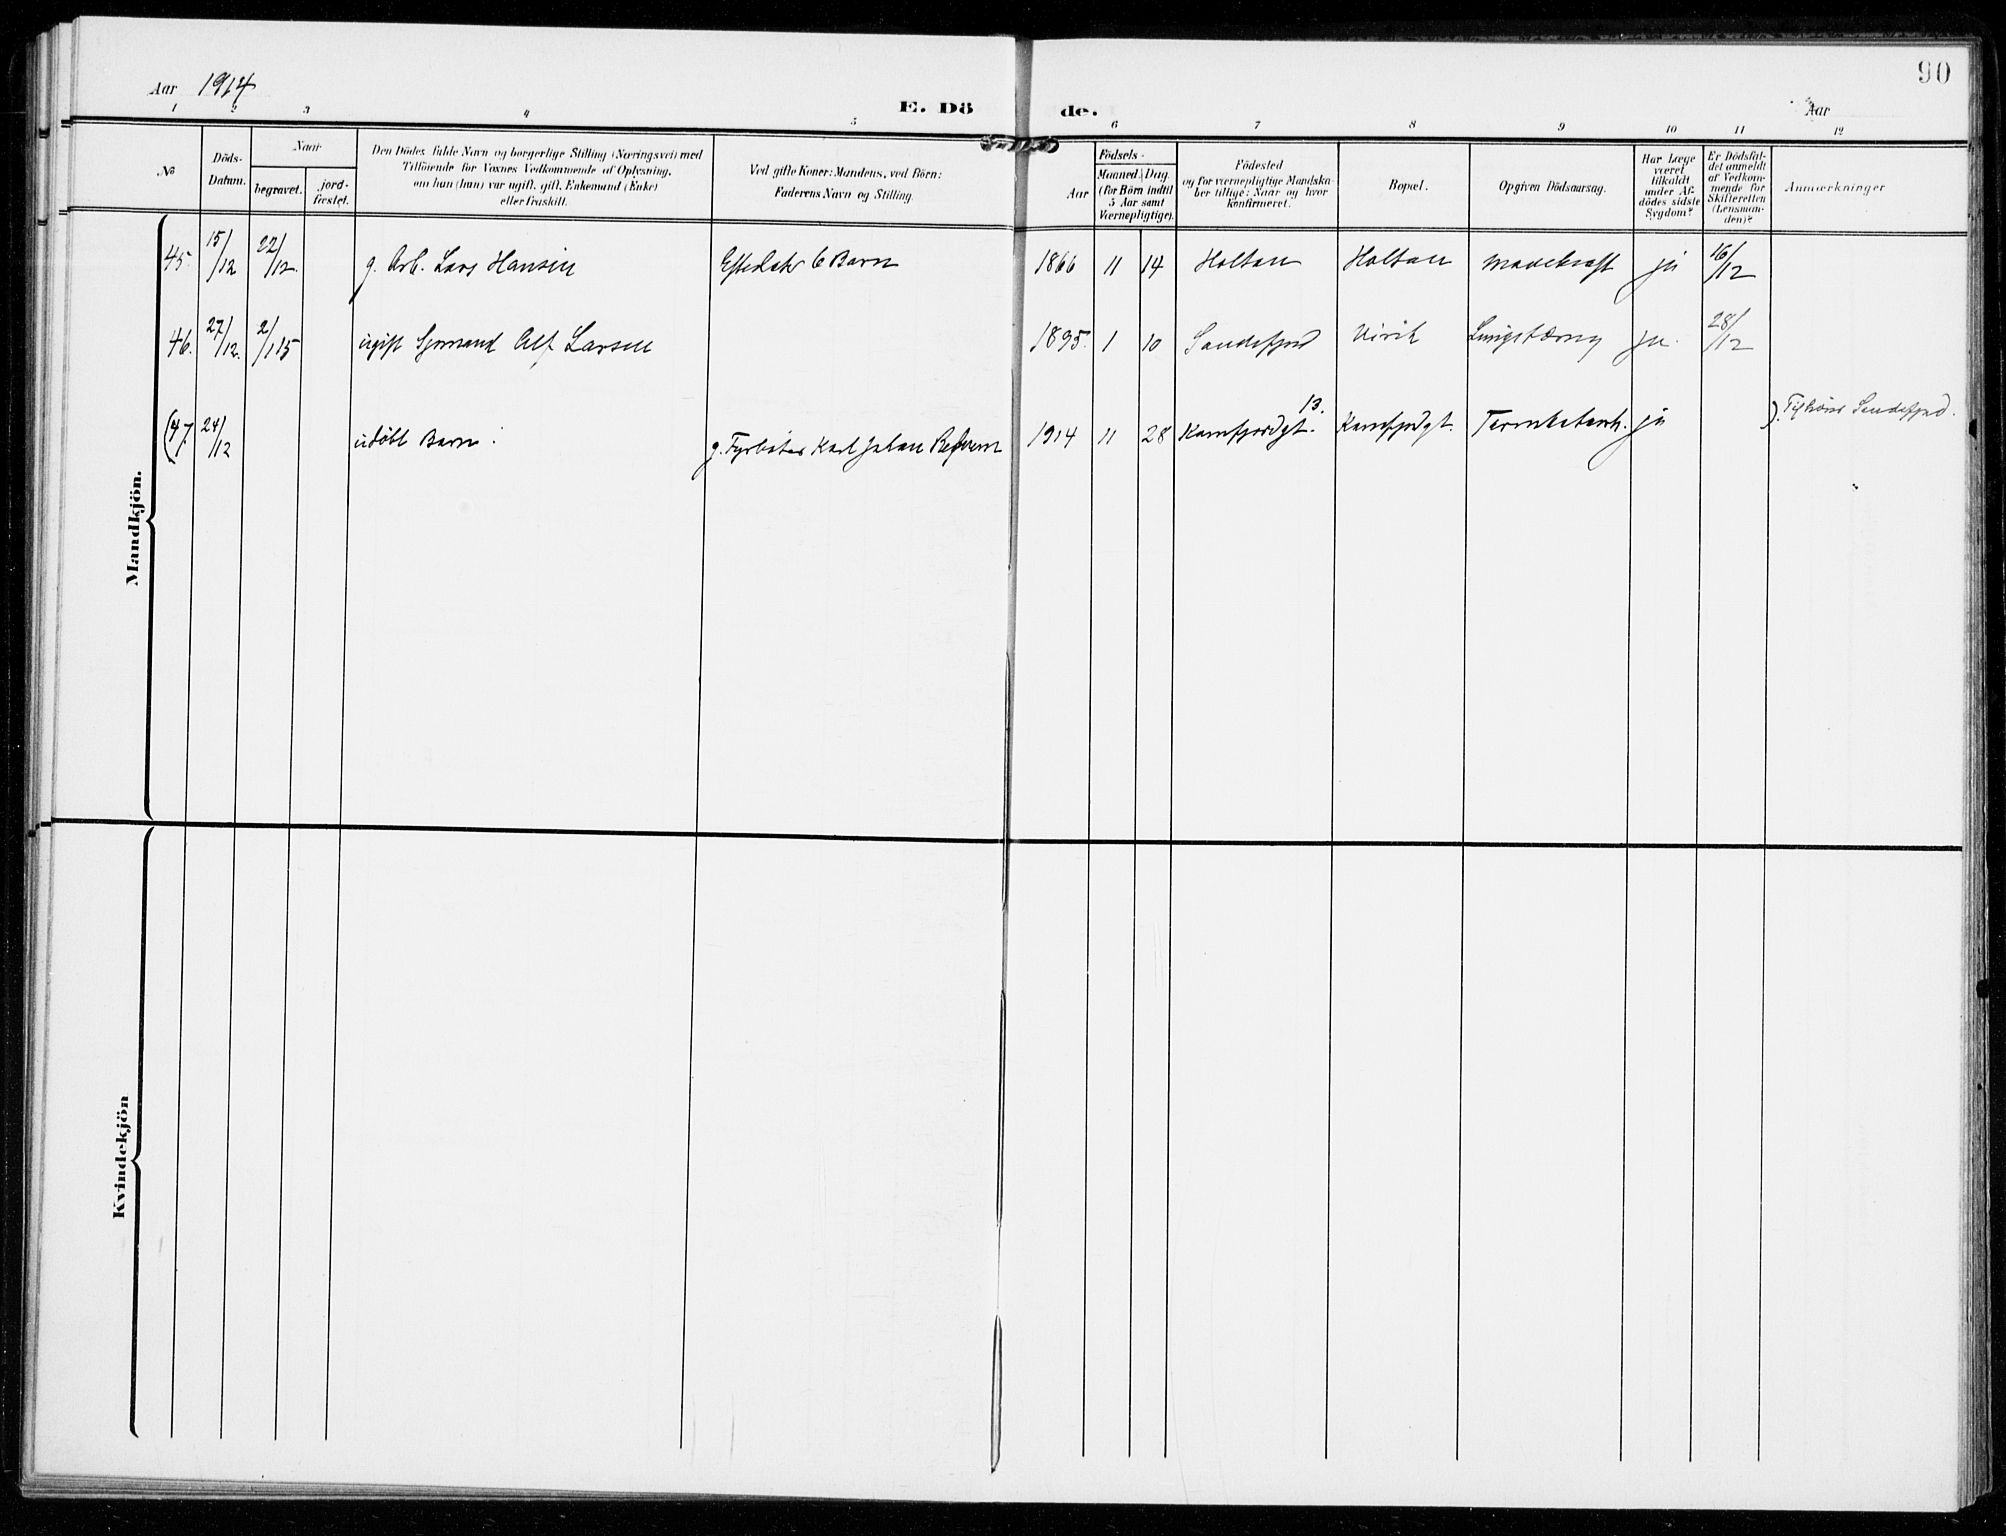 Aar 1914
E. Dö de.
Aar
90
1 2 3 4 5 6 7 8 9 10 11 12
№
Döds-
Datum.
Naar
begravet.
jord-
fæstet.
Den Dödes fulde Navn og borgerlige Stilling (Næringsvei) med
Tilföiende for Voxnes Vedkommende af Oplysning,
om han (hun) var ugift, gift, Enkemand (Enke)
eller fraskilt.
Ved gifte Koner: Mandens, ved Börn:
Faderens Navn og Stilling.
Födsels-
Aar
Maaned. Dag.
(for Börn indtil
5 Aar samt
Værnepligtige).
Födested
og for værnepligtige Mandska-
ber tillige: Naar og hvor
konfirmeret.
Bopæl.
Opgiven Dödsaarsag.
Har Læge
været
tilkaldt
under Af-
dödes sidste
Sygdom?
Er Dödsfal-
det anmeldt
af Vedkom-
mende for
Skifteretten
(Lensman-
den)?
Anmærkninger
Mandkjön.
45. 15/12 22/12. g. Arb. Lars Hansen Efterlater 6 Barn 1866 11 14 Holtan Holtan Mavekræft ja 16/12
46. 27/12. 2/1 15 ugift Sjømand Alf Larsen 1895. 1 10 Sandefjord Virik Lungetæring ja. 28/12
(47. 24/12 udöbt Barn. g. Fyrböter Karl Johan 1914 11 28 Kamfjordgt. 13. Kamfjordgt. ja ). Sandefjord.
Kvindekjön